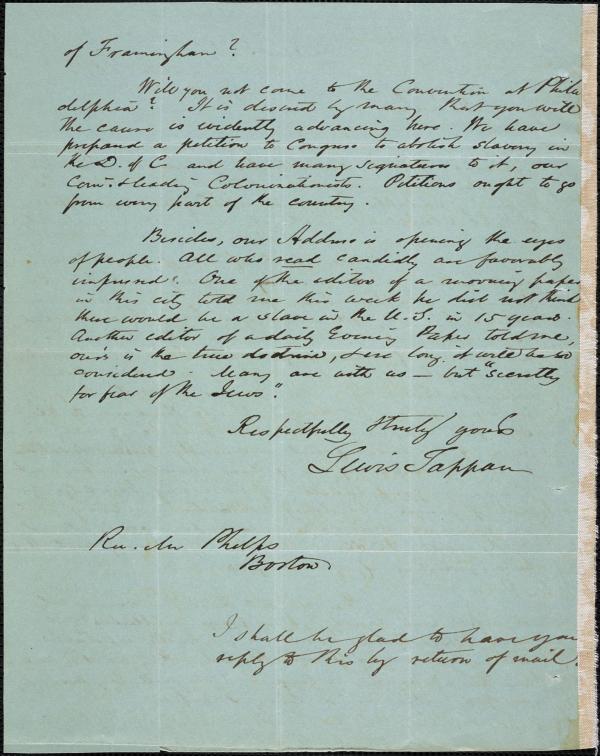 of Framingham?
Will you not come to the Convention at Phila
delphia? It is desired by many that you will
The cause is evidently advancing here. We have
prepared a petition to Congress to abolish slavery in
the D. of C. and have many signatures to it, our
Com. & leading Colonizationists. Petitions ought to go
from every part of the country.
Besides, our Address is opening the eyes
of people. All who read candidly are favorably
impressed. One of the editors of a morning paper
in this city told me this week he did not think
there would be a slave in the U.S. in 15 years.
Another editor of a daily Evening Paper told me,
ours is the true doctrine, & ere long it will be so
considered. Many are with us — but "secretly
for fear of the Jews".
Respectfully & truly yours
Lewis Tappan
Rev. Mr Phelps
Boston.
I shall be glad to have you
reply to this by return of mail.